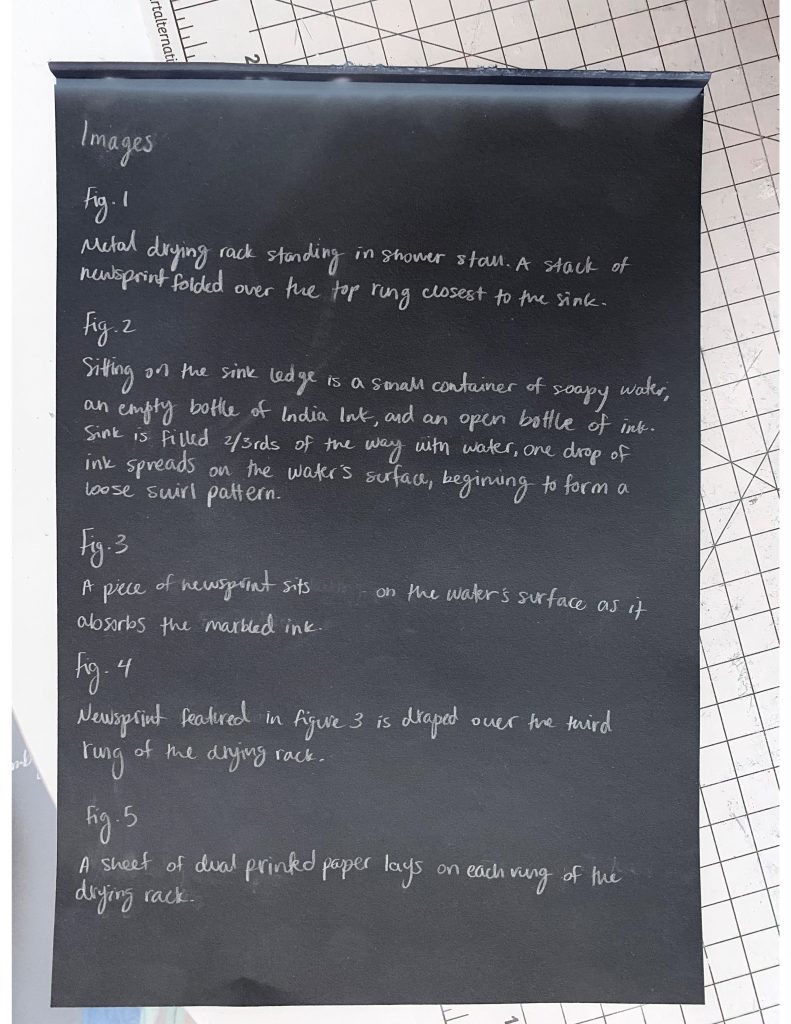 artalternati
2
Images
Fig. 1
Metal drying rack standing in shower stall. A stack of
newsprint folded over the top rung closest to the sink.
Fig. 2
Sitting on the sink ledge is a small container of soapy water,
an empty bottle of India Ink, and an open bottle of ink.
Sink is filled 2/3rds of the way with water, one drop of
ink spreads on the water's surface, begining to form a
loose swirl pattern.
Fig. 3
A piece of newsprint sits on the water's surface as it
absorbs the marbled ink.
Fig. 4
Newsprint featured in figure 3 is draped over the third
rung of the drying rack.
Fig. 5
A sheet of dual printed paper lays on each rung of the
drying rack.
1